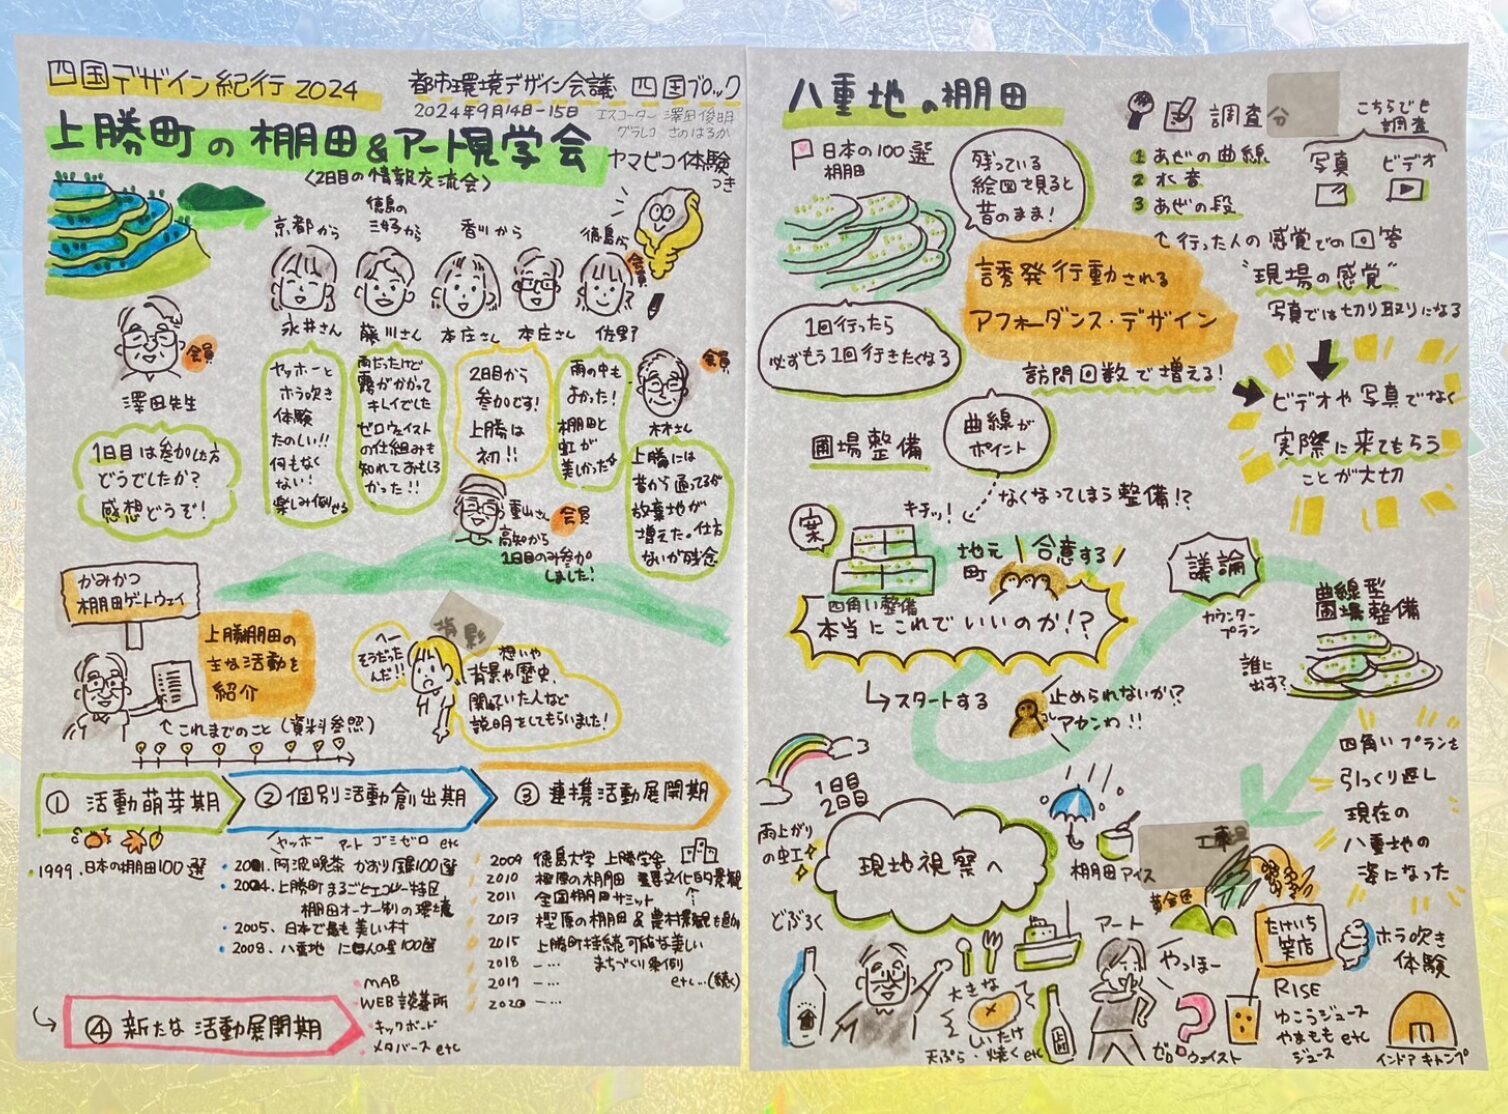 四国デザイン紀行2024
都市環境デザイン会議 四国ブロック
2024年9月14日-15日
エスコーター 澤田俊明
グラレコ さのはるか
上勝町の棚田&アート見学会
〈2日目の情報交流会〉
ヤマビコ体験
つき
京都から
徳島の
三好から
香川から
徳島から
会員
永井さん
藤川さん
本庄さん
本庄さん
佐野
会員
澤田先生
会員
1日目は参加した方
どうでしたか?
感想どうぞ!
ヤッホーと
ホラ吹き
体験
たのしい!!
何もなく
ない!
楽しみ倒せる
雨だったけど
霧がかかって
キレイでした
ゼロウェイスト
の仕組みも
知れておもしろ
かった!!
2日目から
参加です!
上勝は
初!!
雨の中も
よかった!
棚田と
虹が
美しかった
林さん
上勝には
昔から通ってるが
放棄地が
増えた。仕方
ないが残念
重山さん
会員
高知から
1日目のみ参加
しました!
かみかつ
棚田ゲートウェイ
上勝棚田の
主な活動を
紹介
↖これまでのこと(資料参照)
へー
そうだった
んだ!!
背景
想いや
背景や歴史、
関わっていた人など
説明をしてもらいました!
① 活動萌芽期
② 個別活動創出期
③ 連携活動展開期
ヤッホー アート ゴミゼロ etc
・1999.日本の棚田100選
・2001.阿波晩茶 かおり風景100選
・2004.上勝町まるごとエコツー特区
棚田オーナー制の環境
・2005.日本で最も美しい村
・2008.八重地 にほんの里100選
2009 徳島大学 上勝学舎
2010 樫原の棚田 重要文化的景観
2011 全国棚田サミット
2013 樫原の棚田&農村景観も追加
2015 上勝町持続可能な美しい
まちづくり条例
2018 －…
2019 －… etc…(続く)
2020 －…
④ 新たな活動展開期
・MAB
・WEB談義所
・キックボード
・メタバース etc
八重地の棚田
日本の100選
棚田
残っている
絵図を見ると
昔のまま!
調査分
① あぜの曲線
② 水音
③ あぜの段
こちらでも
調査
写真
ビデオ
↖行った人の感覚での回答
"現場の感覚"
写真では切り取りになる
誘発行動される
アフォーダンス・デザイン
1回行ったら
必ずもう1回行きたくなる
訪問回数で増える!
ビデオや写真でなく
実際に来てもらう
ことが大切
圃場整備
曲線が
ポイント
なくなってしまう整備!?
案
キチッ!
四角い整備
地元
町
合意する
本当にこれでいいのか!?
↳スタートする
止められないか!?
アカンわ!!
議論
カウンター
プラン
曲線型
圃場整備
誰に
出す?
四角いプランを
引っくり返し
現在の
八重地の
姿になった
1日目
2日目
雨上がり
の虹
現地視察へ
棚田アイス
黄金色
どぶろく
大きな
しいたけ
天ぷら・焼く etc
上勝
アート
やっほー
ゼロウェイスト
たけいち
笑店
ホラ吹き
体験
RISE
ゆこうジュース
やまもも etc
ジュース
インドアキャンプ